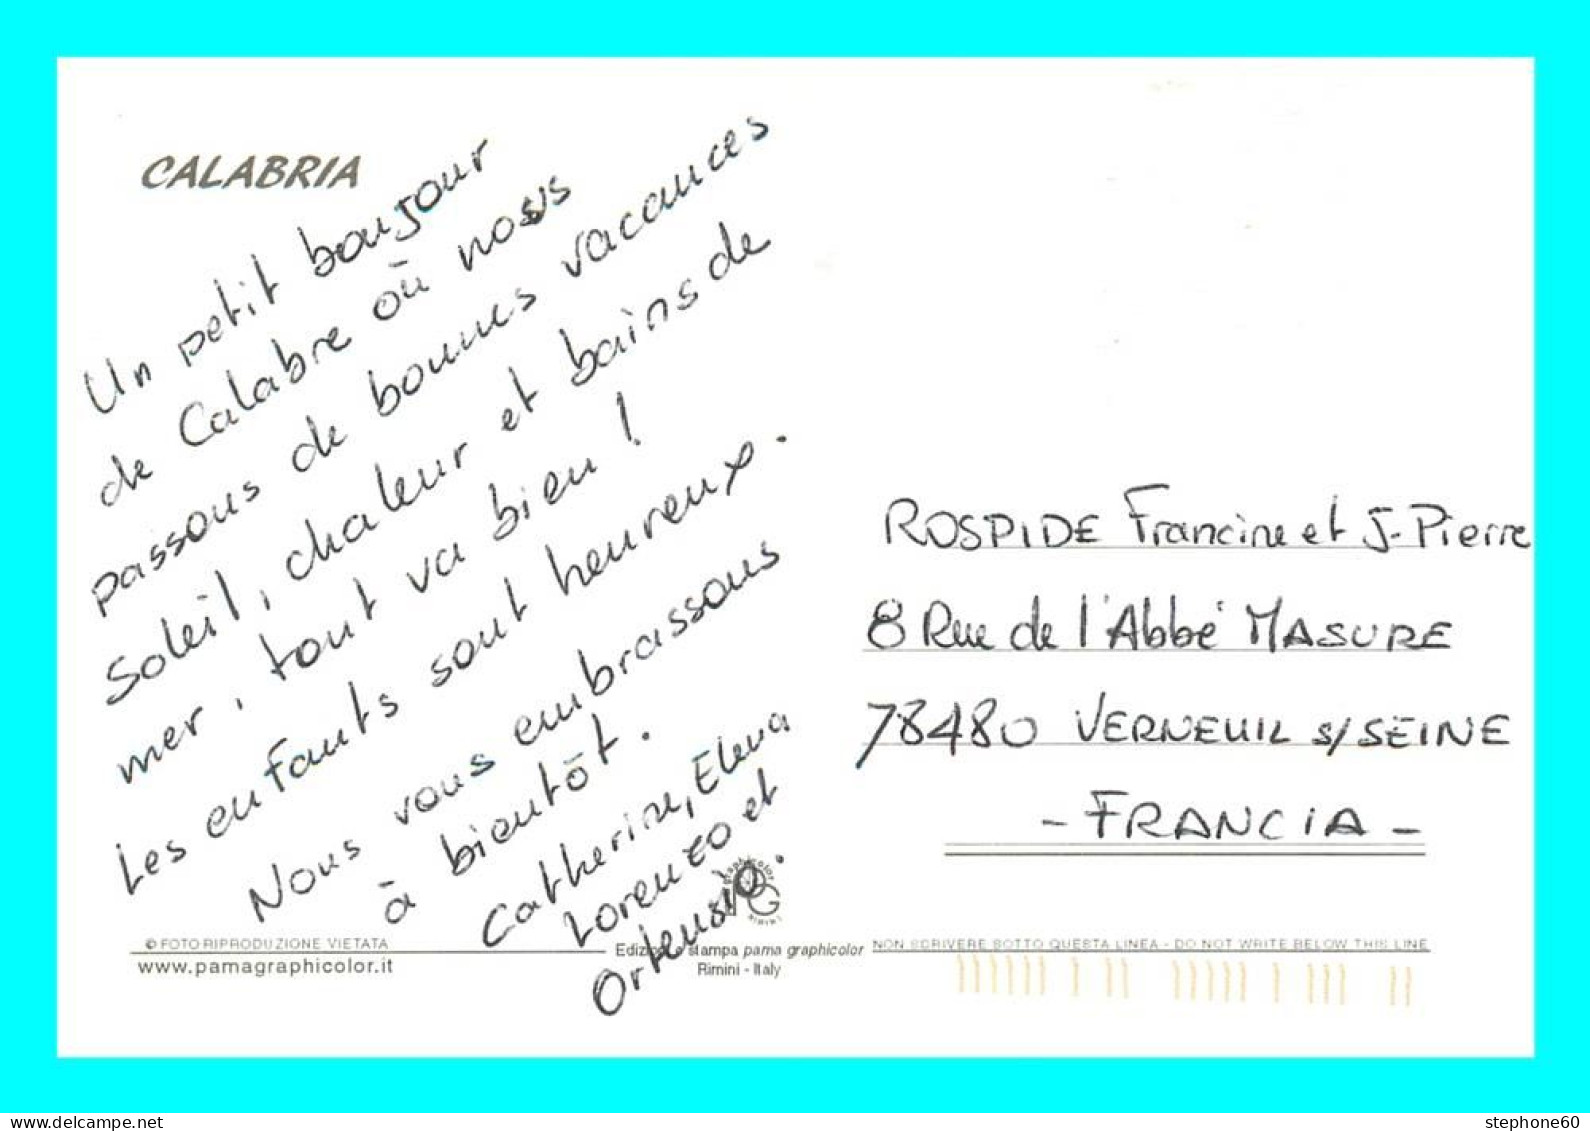 CALABRIA
Un petit bonjour
de Calabre où nous
passons de bonnes vacances
Soleil, chaleur et bains de
mer, tout va bien !
Les enfants sont heureux.
Nous vous embrassons
à bientôt.
Catherine, Elena
Lorenzo et
Ortensio.
ROSPIDE Francine et J-Pierre
8 Rue de l'Abbé MASURE
78480 VERNEUIL s/SEINE
- FRANCIA -
© FOTO RIPRODUZIONE VIETATA
www.pamagraphicolor.it
Edizioni e stampa pama graphicolor
Rimini - Italy
NON SCRIVERE SOTTO QUESTA LINEA - DO NOT WRITE BELOW THIS LINE
stephone60